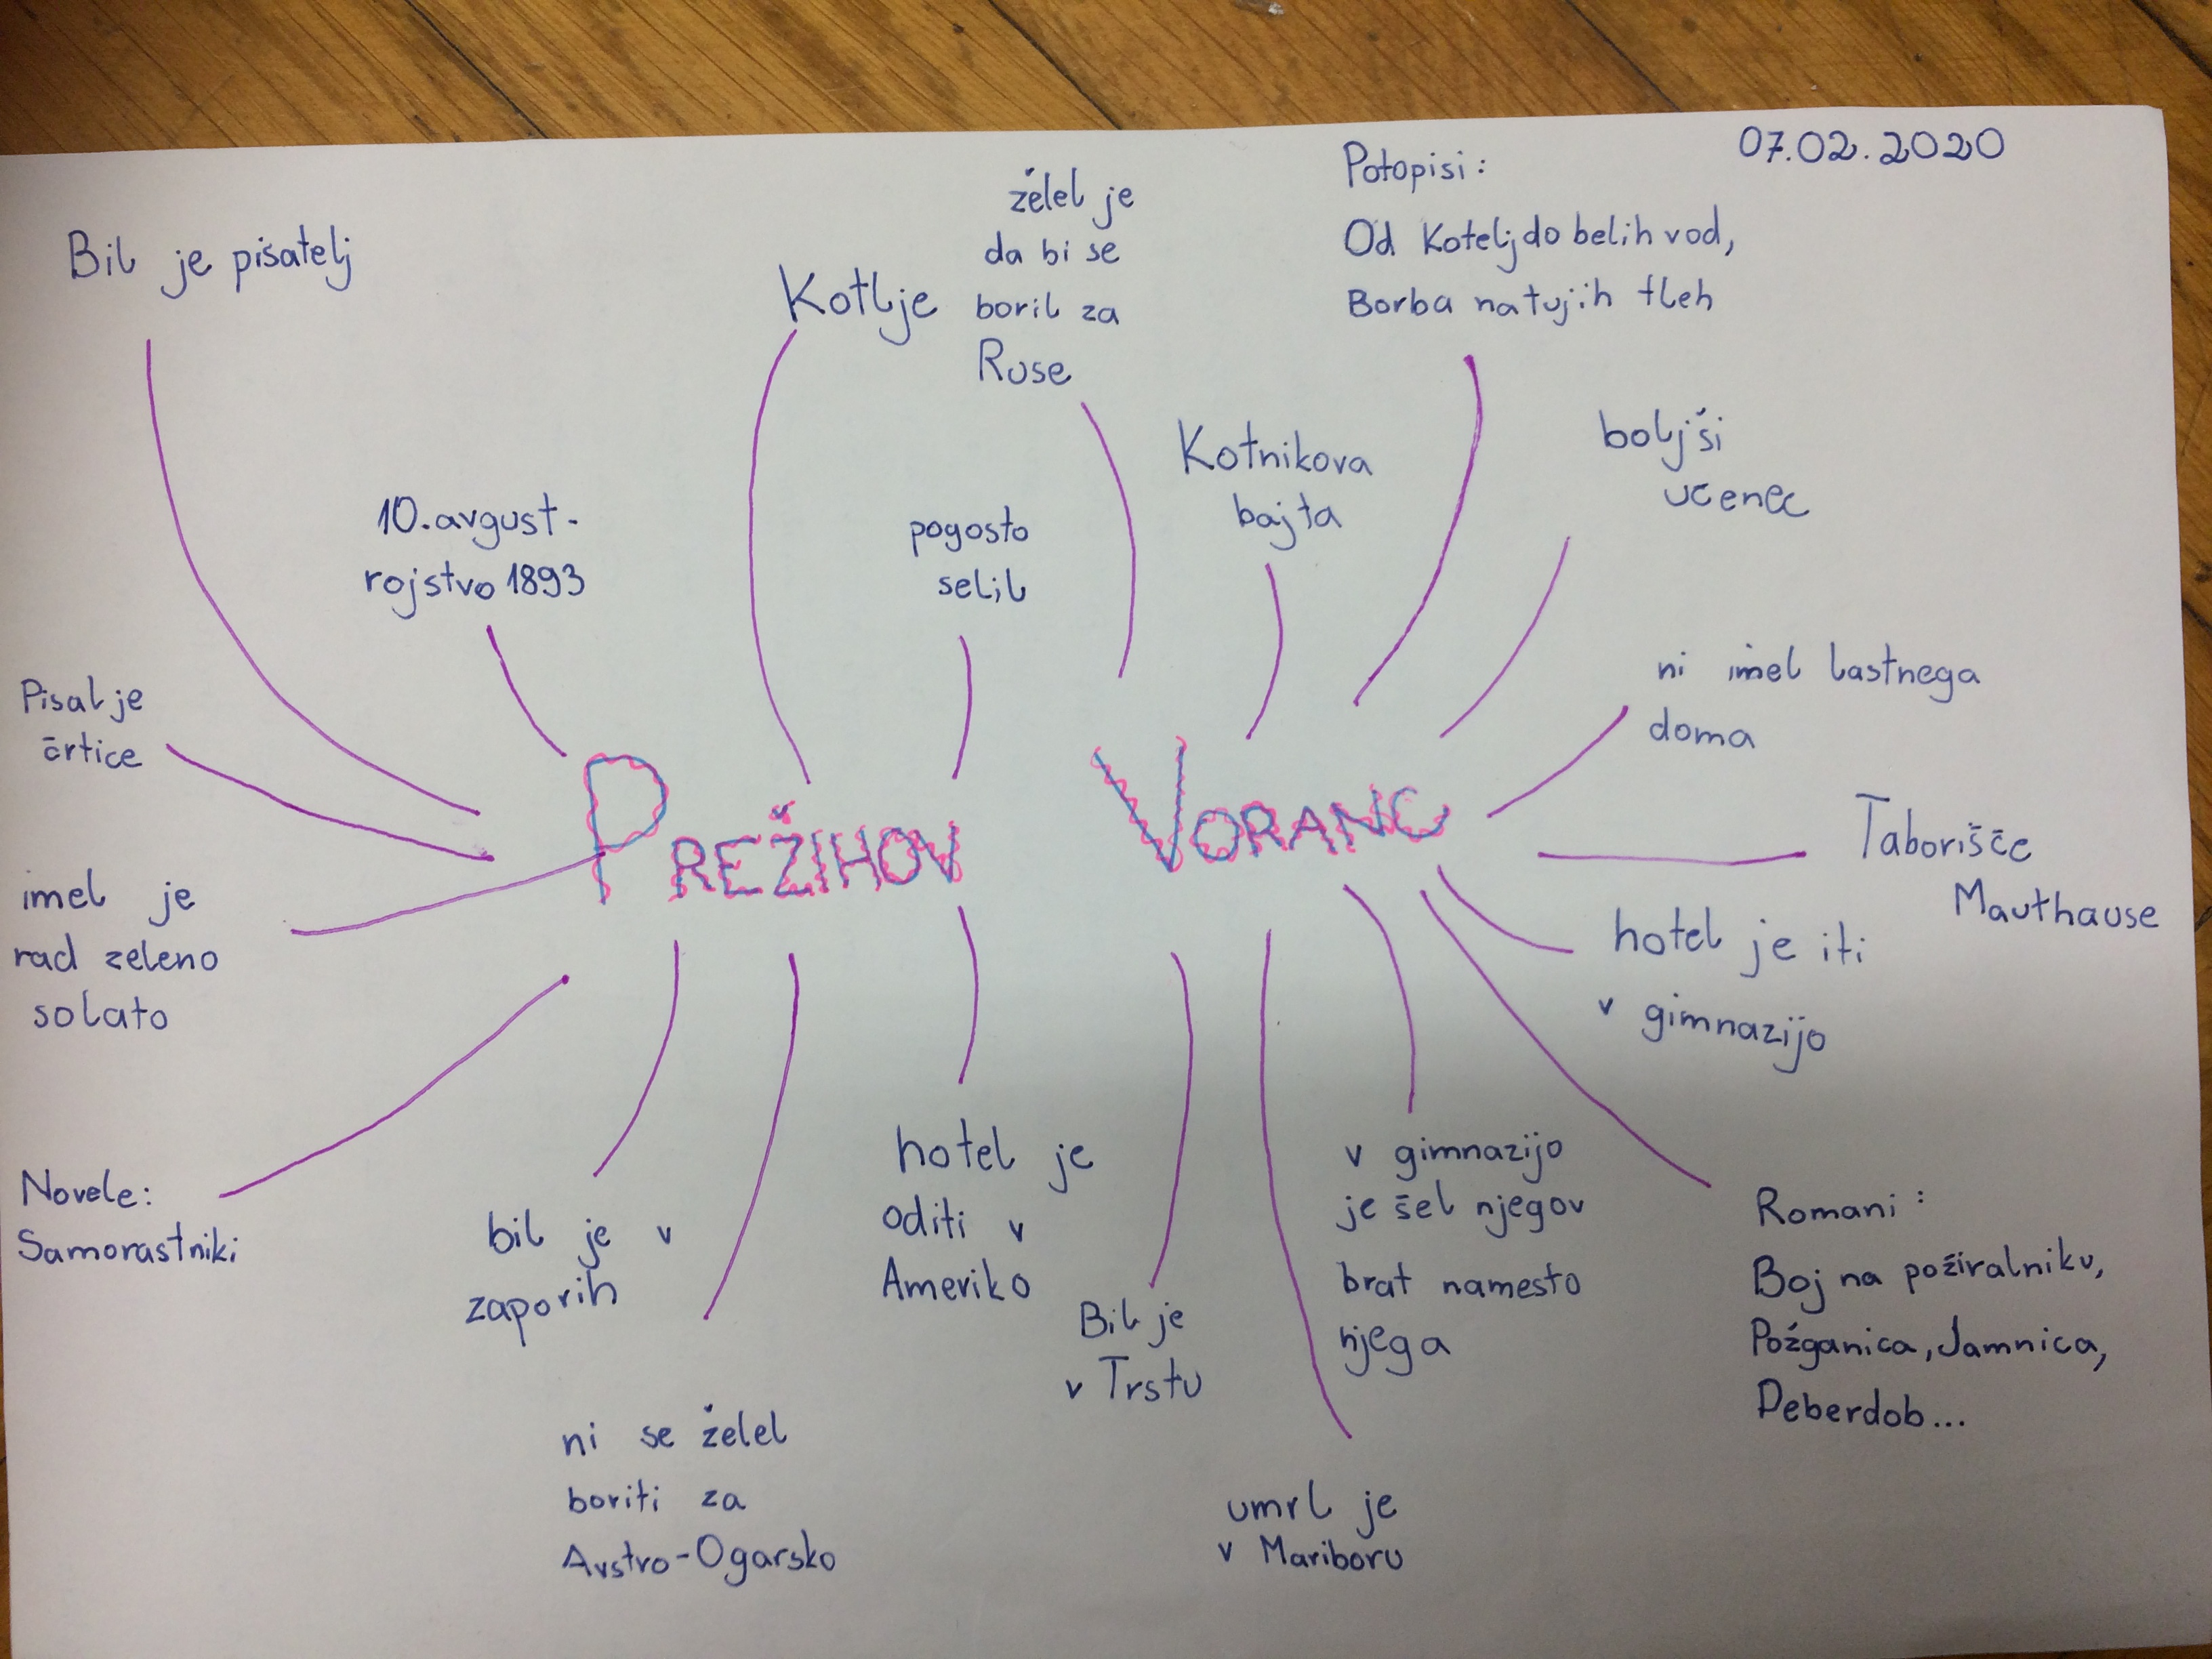 07.02.2020
Bil je pišatelj
Kotlje
želel je
da bi se
boril za
Ruse
Potopisi:
Od Kotelj do belih vod,
Borba na tujih tleh
10. avgust -
rojstvo 1893
pogosto
selil
Kotnikova
bajta
boljši
ucenec
ni imel lastnega
doma
Pisal je
črtice
PREŽIHOV VORANC
Taborišče
Mauthause
imel je
rad zeleno
solato
hotel je iti
v gimnazijo
Novele:
Samorastniki
bil je v
zaporih
hotel je
oditi v
Ameriko
Bil je
v Trstu
v gimnazijo
je šel njegov
brat namesto
njega
Romani:
Boj na požiralniku,
Požganica, Jamnica,
Deberdob...
ni se želel
boriti za
Avstro-Ogarsko
umrl je
v Mariboru